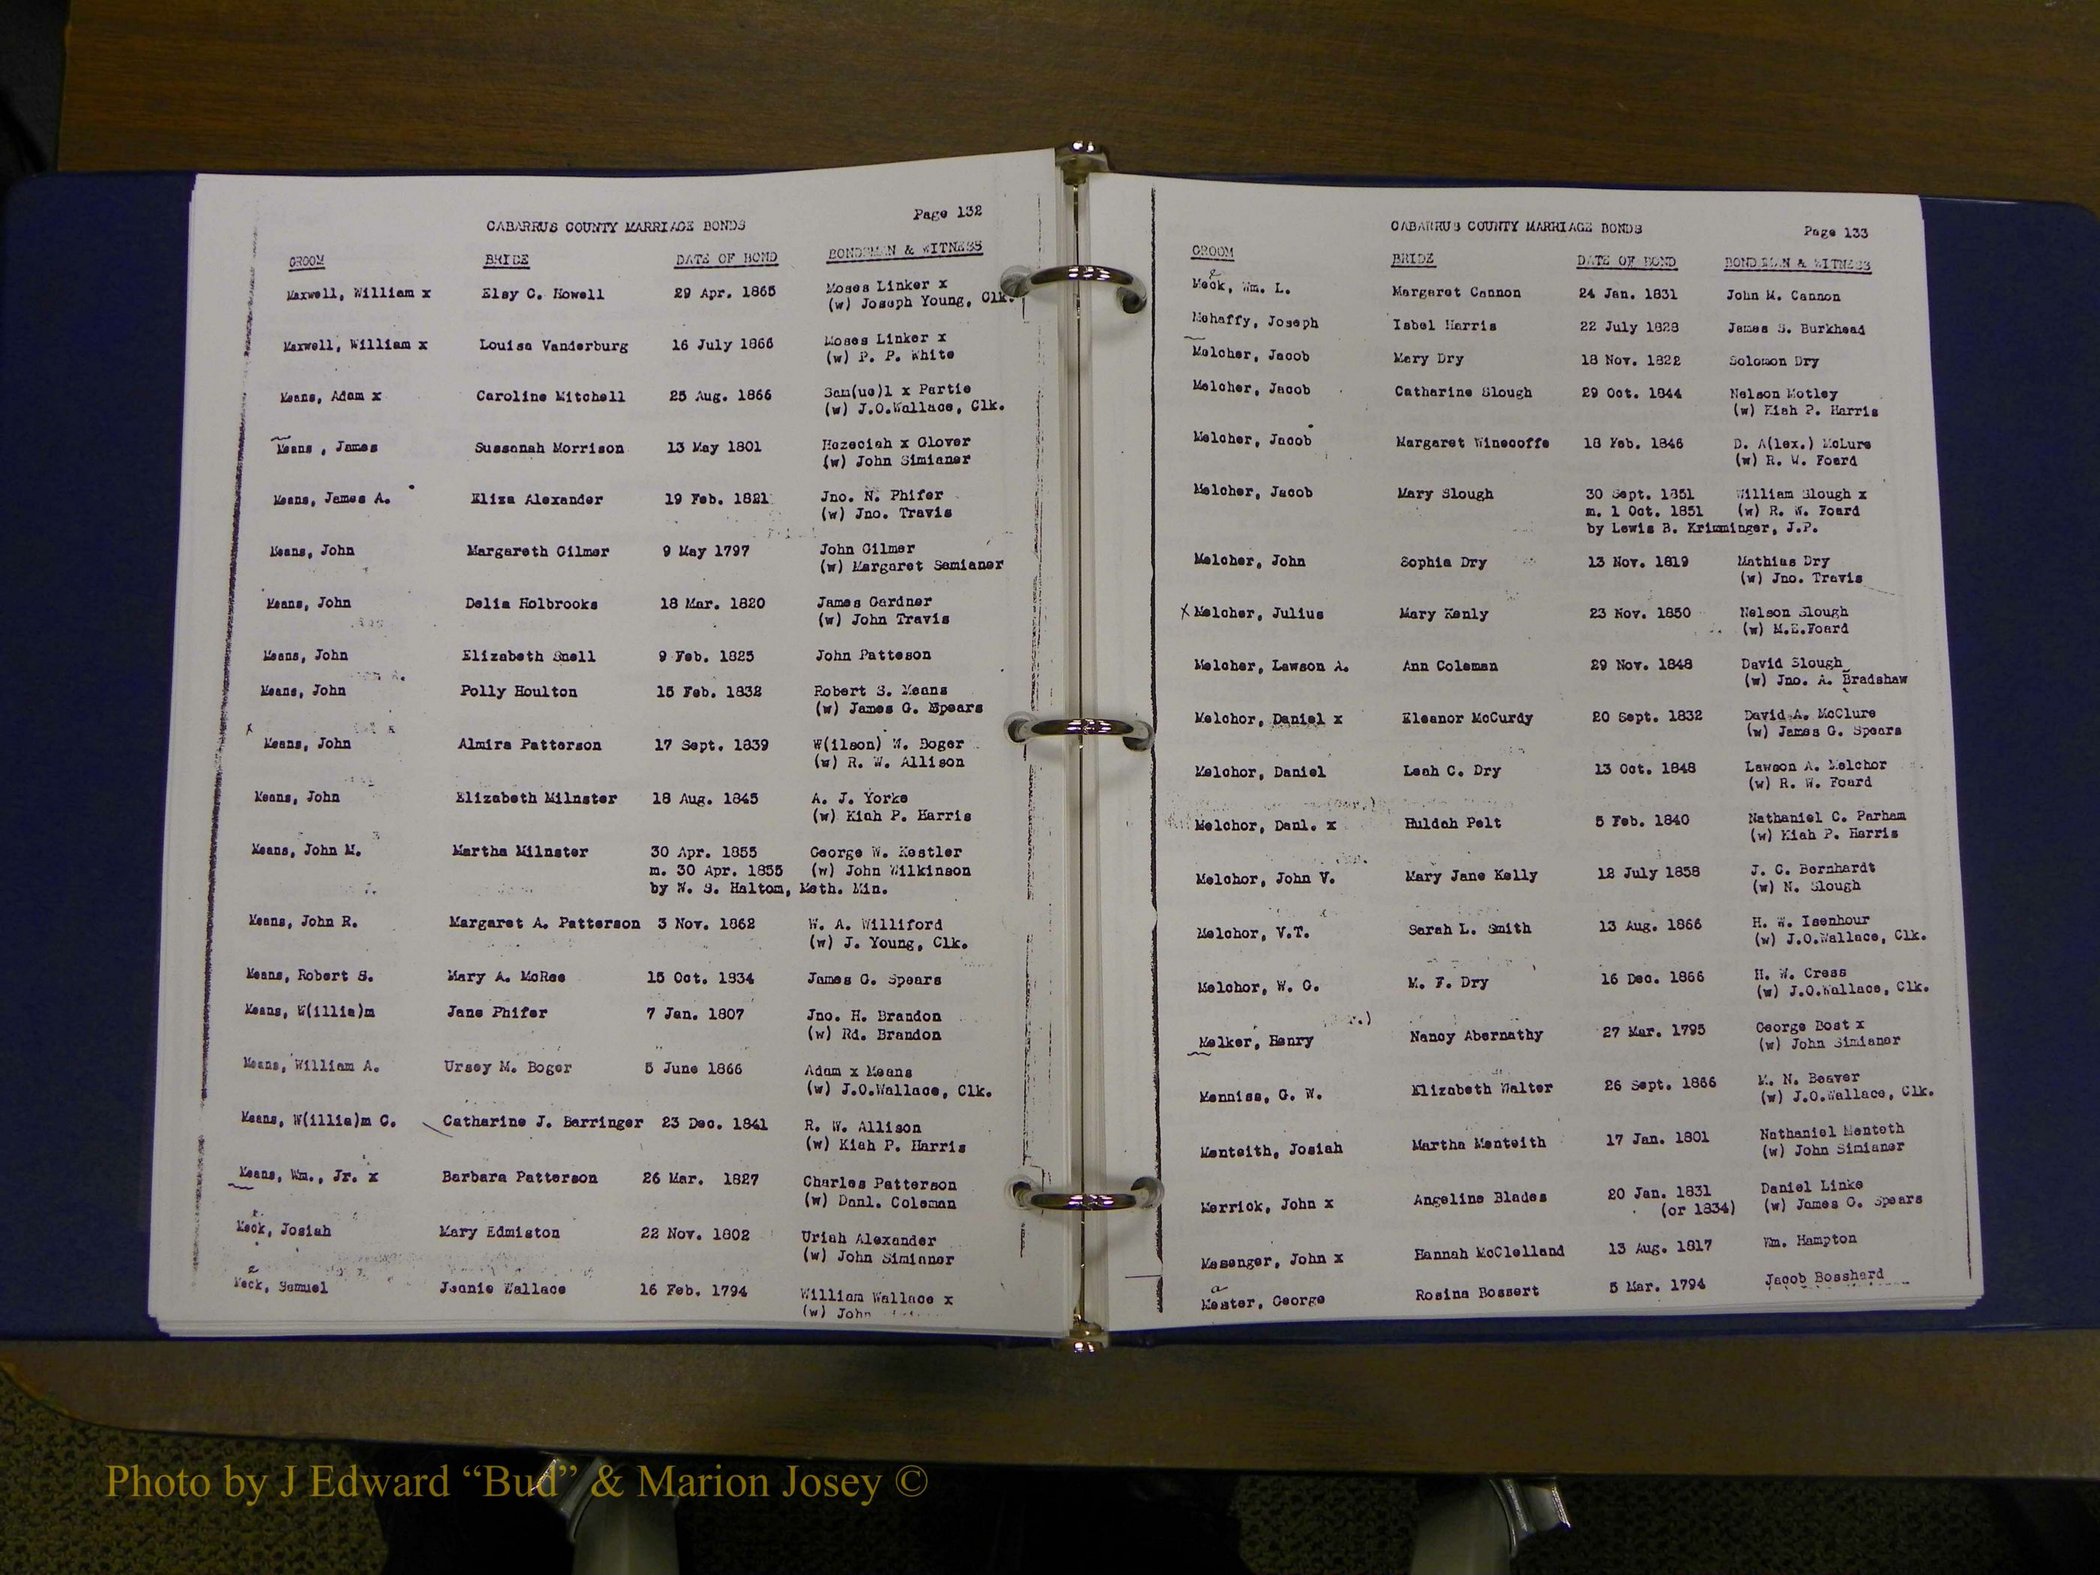 CABARRUS COUNTY MARRIAGE BONDS Page 132
GROOM BRIDE DATE OF BOND BONDSMAN & WITNESS
Maxwell, William x Elsy C. Howell 29 Apr. 1865 Moses Linker x
(w) Joseph Young, Clk.
Maxwell, William x Louisa Vanderburg 16 July 1866 Moses Linker x
(w) P. P. White
Means, Adam x Caroline Mitchell 25 Aug. 1866 Sam(ue)l x Partie
(w) J.O.Wallace, Clk.
Means , James Sussanah Morrison 13 May 1801 Hezeciah x Glover
(w) John Simianer
Means, James A. Eliza Alexander 19 Feb. 1821 Jno. N. Phifer
(w) Jno. Travis
Means, John Margareth Gilmer 9 May 1797 John Gilmer
(w) Margaret Semianer
Means, John Delia Holbrooks 18 Mar. 1820 James Gardner
(w) John Travis
Means, John Elizabeth Snell 9 Feb. 1825 John Patteson
Means, John Polly Houlton 15 Feb. 1832 Robert S. Means
(w) James G. Spears
x Means, John Almira Patterson 17 Sept. 1839 W(ilson) W. Boger
(w) R. W. Allison
Means, John Elizabeth Milnster 18 Aug. 1845 A. J. Yorke
(w) Kiah P. Harris
Means, John M. Martha Milnster 30 Apr. 1855 George W. Kestler
m. 30 Apr. 1855 (w) John Wilkinson
by W. S. Haltom, Meth. Min.
Means, John R. Margaret A. Patterson 3 Nov. 1862 W. A. Williford
(w) J. Young, Clk.
Means, Robert S. Mary A. McRee 15 Oct. 1834 James G. Spears
Means, W(illia)m Jane Phifer 7 Jan. 1807 Jno. H. Brandon
(w) Rd. Brandon
Means, William A. Ursey M. Boger 5 June 1866 Adam x Means
(w) J.O.Wallace, Clk.
Means, W(illia)m C. Catharine J. Barringer 23 Dec. 1841 R. W. Allison
(w) Kiah P. Harris
Means, Wm., Jr. x Barbara Patterson 26 Mar. 1827 Charles Patterson
(w) Danl. Coleman
Meck, Josiah Mary Edmiston 22 Nov. 1802 Uriah Alexander
(w) John Simianer
Meck, Samuel Jeanie Wallace 16 Feb. 1794 William Wallace x
(w) John
CABARRUS COUNTY MARRIAGE BONDS Page 133
GROOM BRIDE DATE OF BOND BONDSMAN & WITNESS
Meck, Wm. L. Margaret Cannon 24 Jan. 1831 John M. Cannon
Mehaffy, Joseph Isbel Harris 22 July 1828 James S. Burkhead
Melcher, Jacob Mary Dry 18 Nov. 1822 Solomon Dry
Melcher, Jacob Catharine Slough 29 Oct. 1844 Nelson Motley
(w) Kiah P. Harris
Melcher, Jacob Margaret Winecoffe 18 Feb. 1846 D. A(lex.) McLure
(w) R. W. Foard
Melcher, Jacob Mary Slough 30 Sept. 1851 William Slough x
m. 1 Oct. 1851 (w) R. W. Foard
by Lewis B. Krimminger, J.P.
Melcher, John Sophia Dry 13 Nov. 1819 Mathias Dry
(w) Jno. Travis
x Melcher, Julius Mary Kenly 23 Nov. 1850 Nelson Slough
(w) M.E.Foard
Melcher, Lawson A. Ann Coleman 29 Nov. 1848 David Slough
(w) Jno. A. Bradshaw
Melchor, Daniel x Eleanor McCurdy 20 Sept. 1832 David A. McClure
(w) James G. Spears
Melchor, Daniel Leah C. Dry 13 Oct. 1848 Lawson A. Melchor
(w) R. W. Foard
Melchor, Danl. x Huldah Pelt 5 Feb. 1840 Nathaniel C. Parham
(w) Kiah P. Harris
Melchor, John V. Mary Jane Kelly 12 July 1858 J. C. Bernhardt
(w) N. Slough
Melchor, V.T. Sarah L. Smith 13 Aug. 1866 H. W. Isenhour
(w) J.O.Wallace, Clk.
Melchor, W. G. M. F. Dry 16 Dec. 1866 H. W. Cress
(w) J.O.Wallace, Clk.
Melker, Henry Nancy Abernathy 27 Mar. 1795 George Bost x
(w) John Simianer
Menniss, G. W. Elizabeth Walter 26 Sept. 1866 M. N. Beaver
(w) J.O.Wallace, Clk.
Menteith, Josiah Martha Menteith 17 Jan. 1801 Nathaniel Menteth
(w) John Simianer
Merrick, John x Angeline Blades 20 Jan. 1831 Daniel Linke
(or 1834) (w) James G. Spears
Mesenger, John x Hannah McClelland 13 Aug. 1817 Wm. Hampton
Mester, George Rosina Bossert 5 Mar. 1794 Jacob Bosshard
Photo by J Edward “Bud” & Marion Josey ©